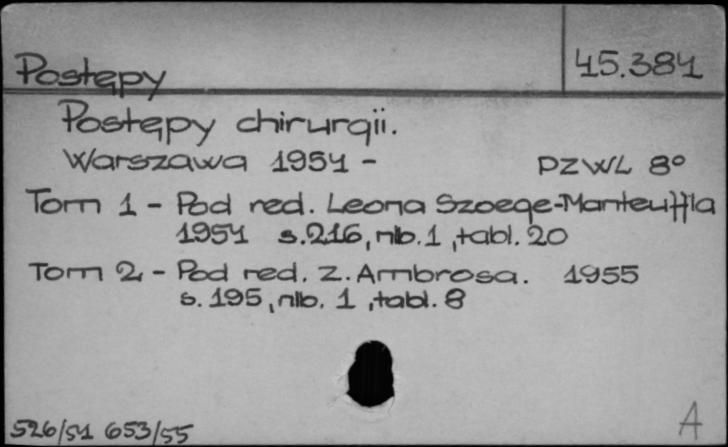 Postępy
45.384
Postępy chirurgii.
Warszawa 1954 - PZWL 8°
Tom 1 - Pod red. Leona Szoege-Manteuffla
1954 s.216, nlb. 1, tabl. 20
Tom 2 - Pod red. Z. Ambrosa. 1955
s. 195, nlb. 1, tabl. 8
526/54 653/55
A